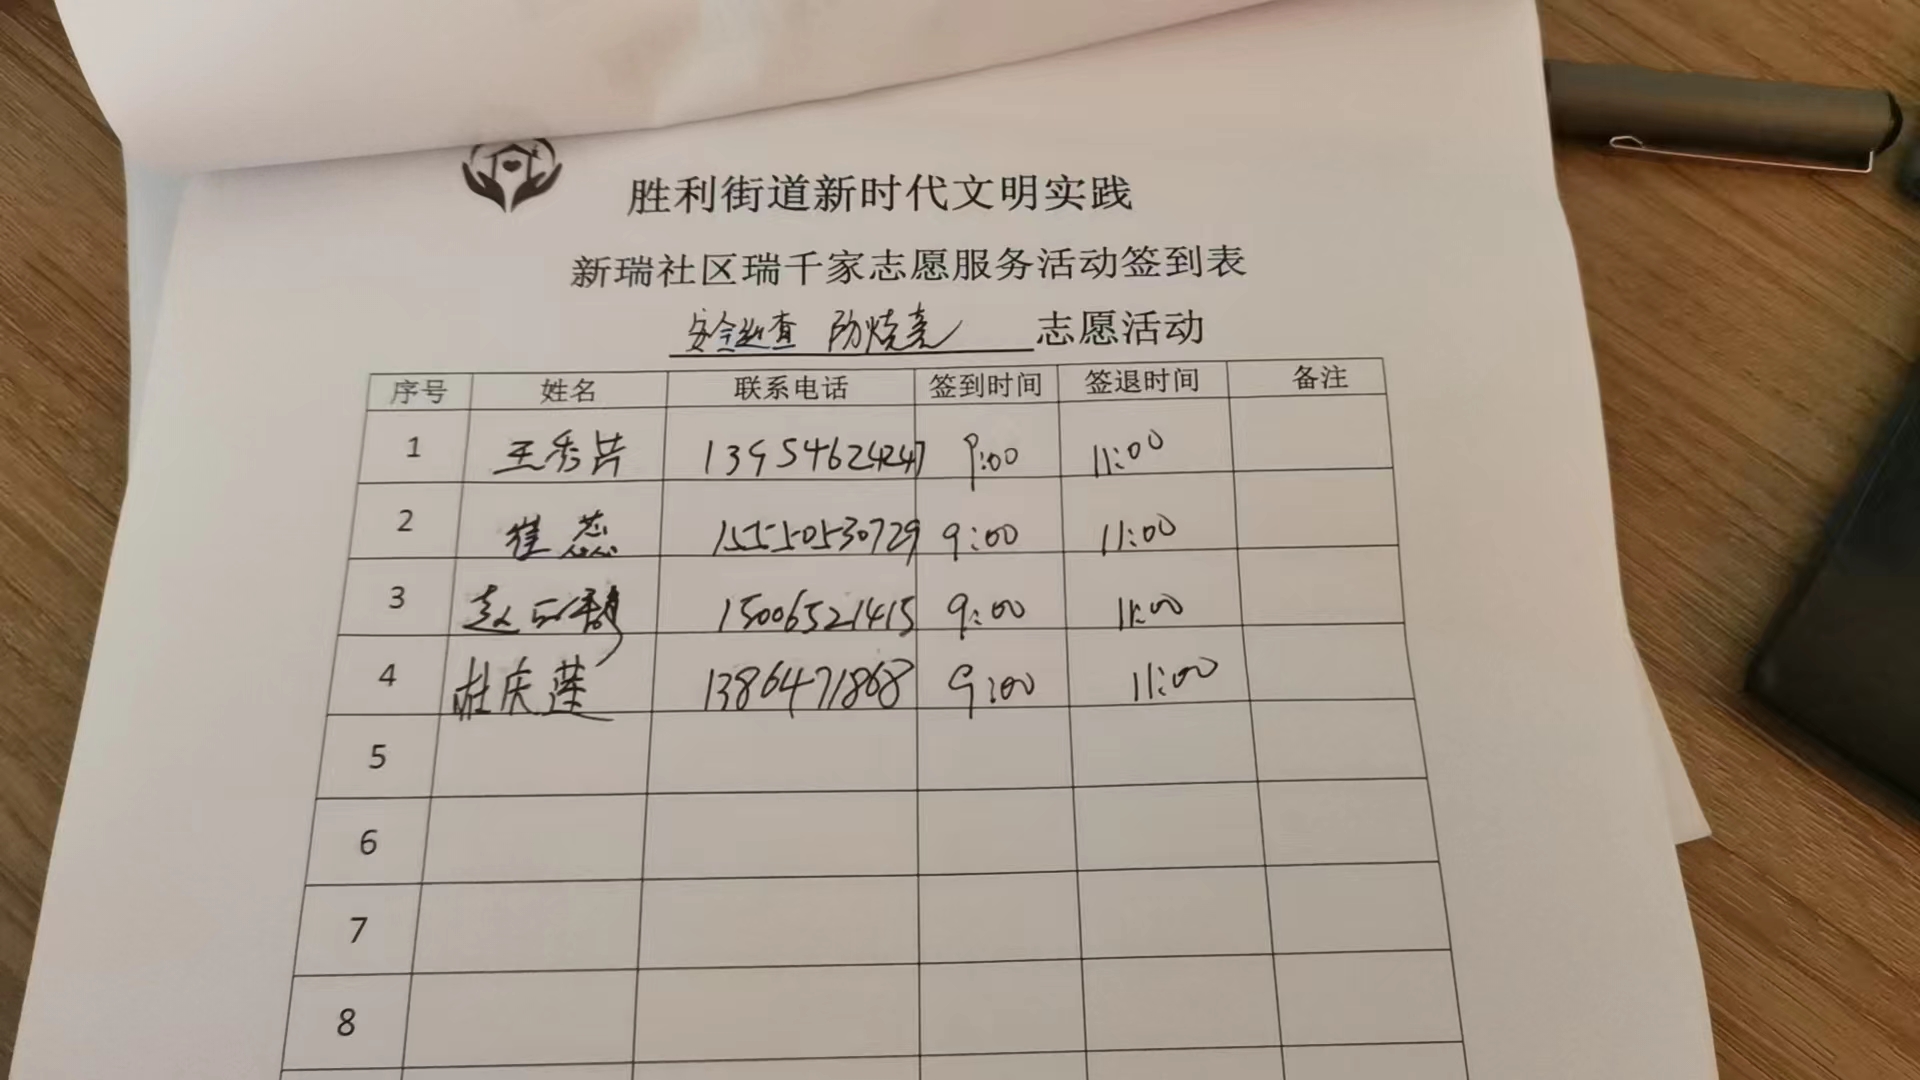 胜利街道新时代文明实践
新瑞社区瑞千家志愿服务活动签到表
安全巡查 防烧荒 志愿活动
序号 姓名 联系电话 签到时间 签退时间 备注
1 王秀芹 13954624247 9:00 11:00
2 崔蕊 15550530729 9:00 11:00
3 赵 15006521415 9:00 11:00
4 杜庆莲 13864771868 9:00 11:00
5
6
7
8